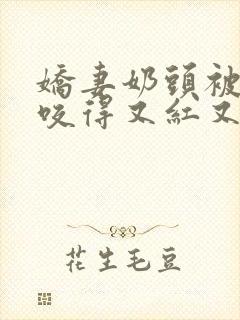 嬌妻奶頭被
咬得又紅又
花生毛豆